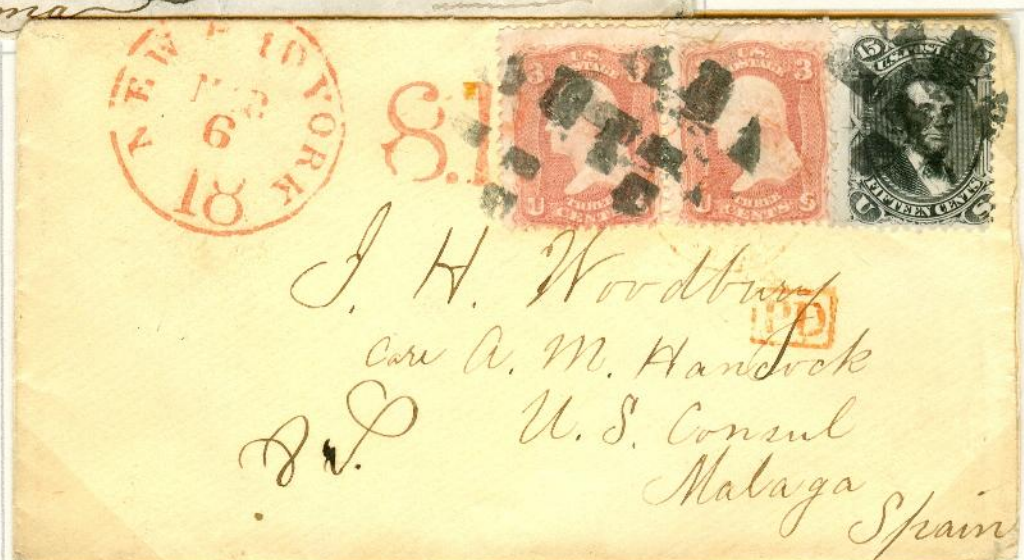 ma
NEW YORK 10
MAR
6
18
8.1
3 U.S. POSTAGE
U THREE CENTS
U.S. POSTAGE 3
U THREE CENTS S
15 U.S. POSTAGE 15
U FIFTEEN CENTS S
J. H. Woodbury
PD
care A. M. Hancock
U. S. Consul
Malaga
Spain